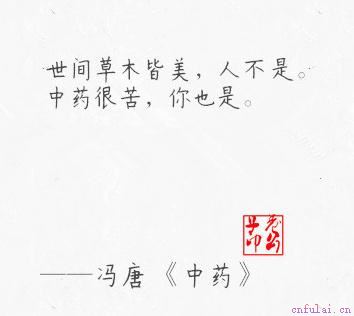 世间草木皆美，人不是。
中药很苦，你也是。
——冯唐《中药》
cnfulai.cn